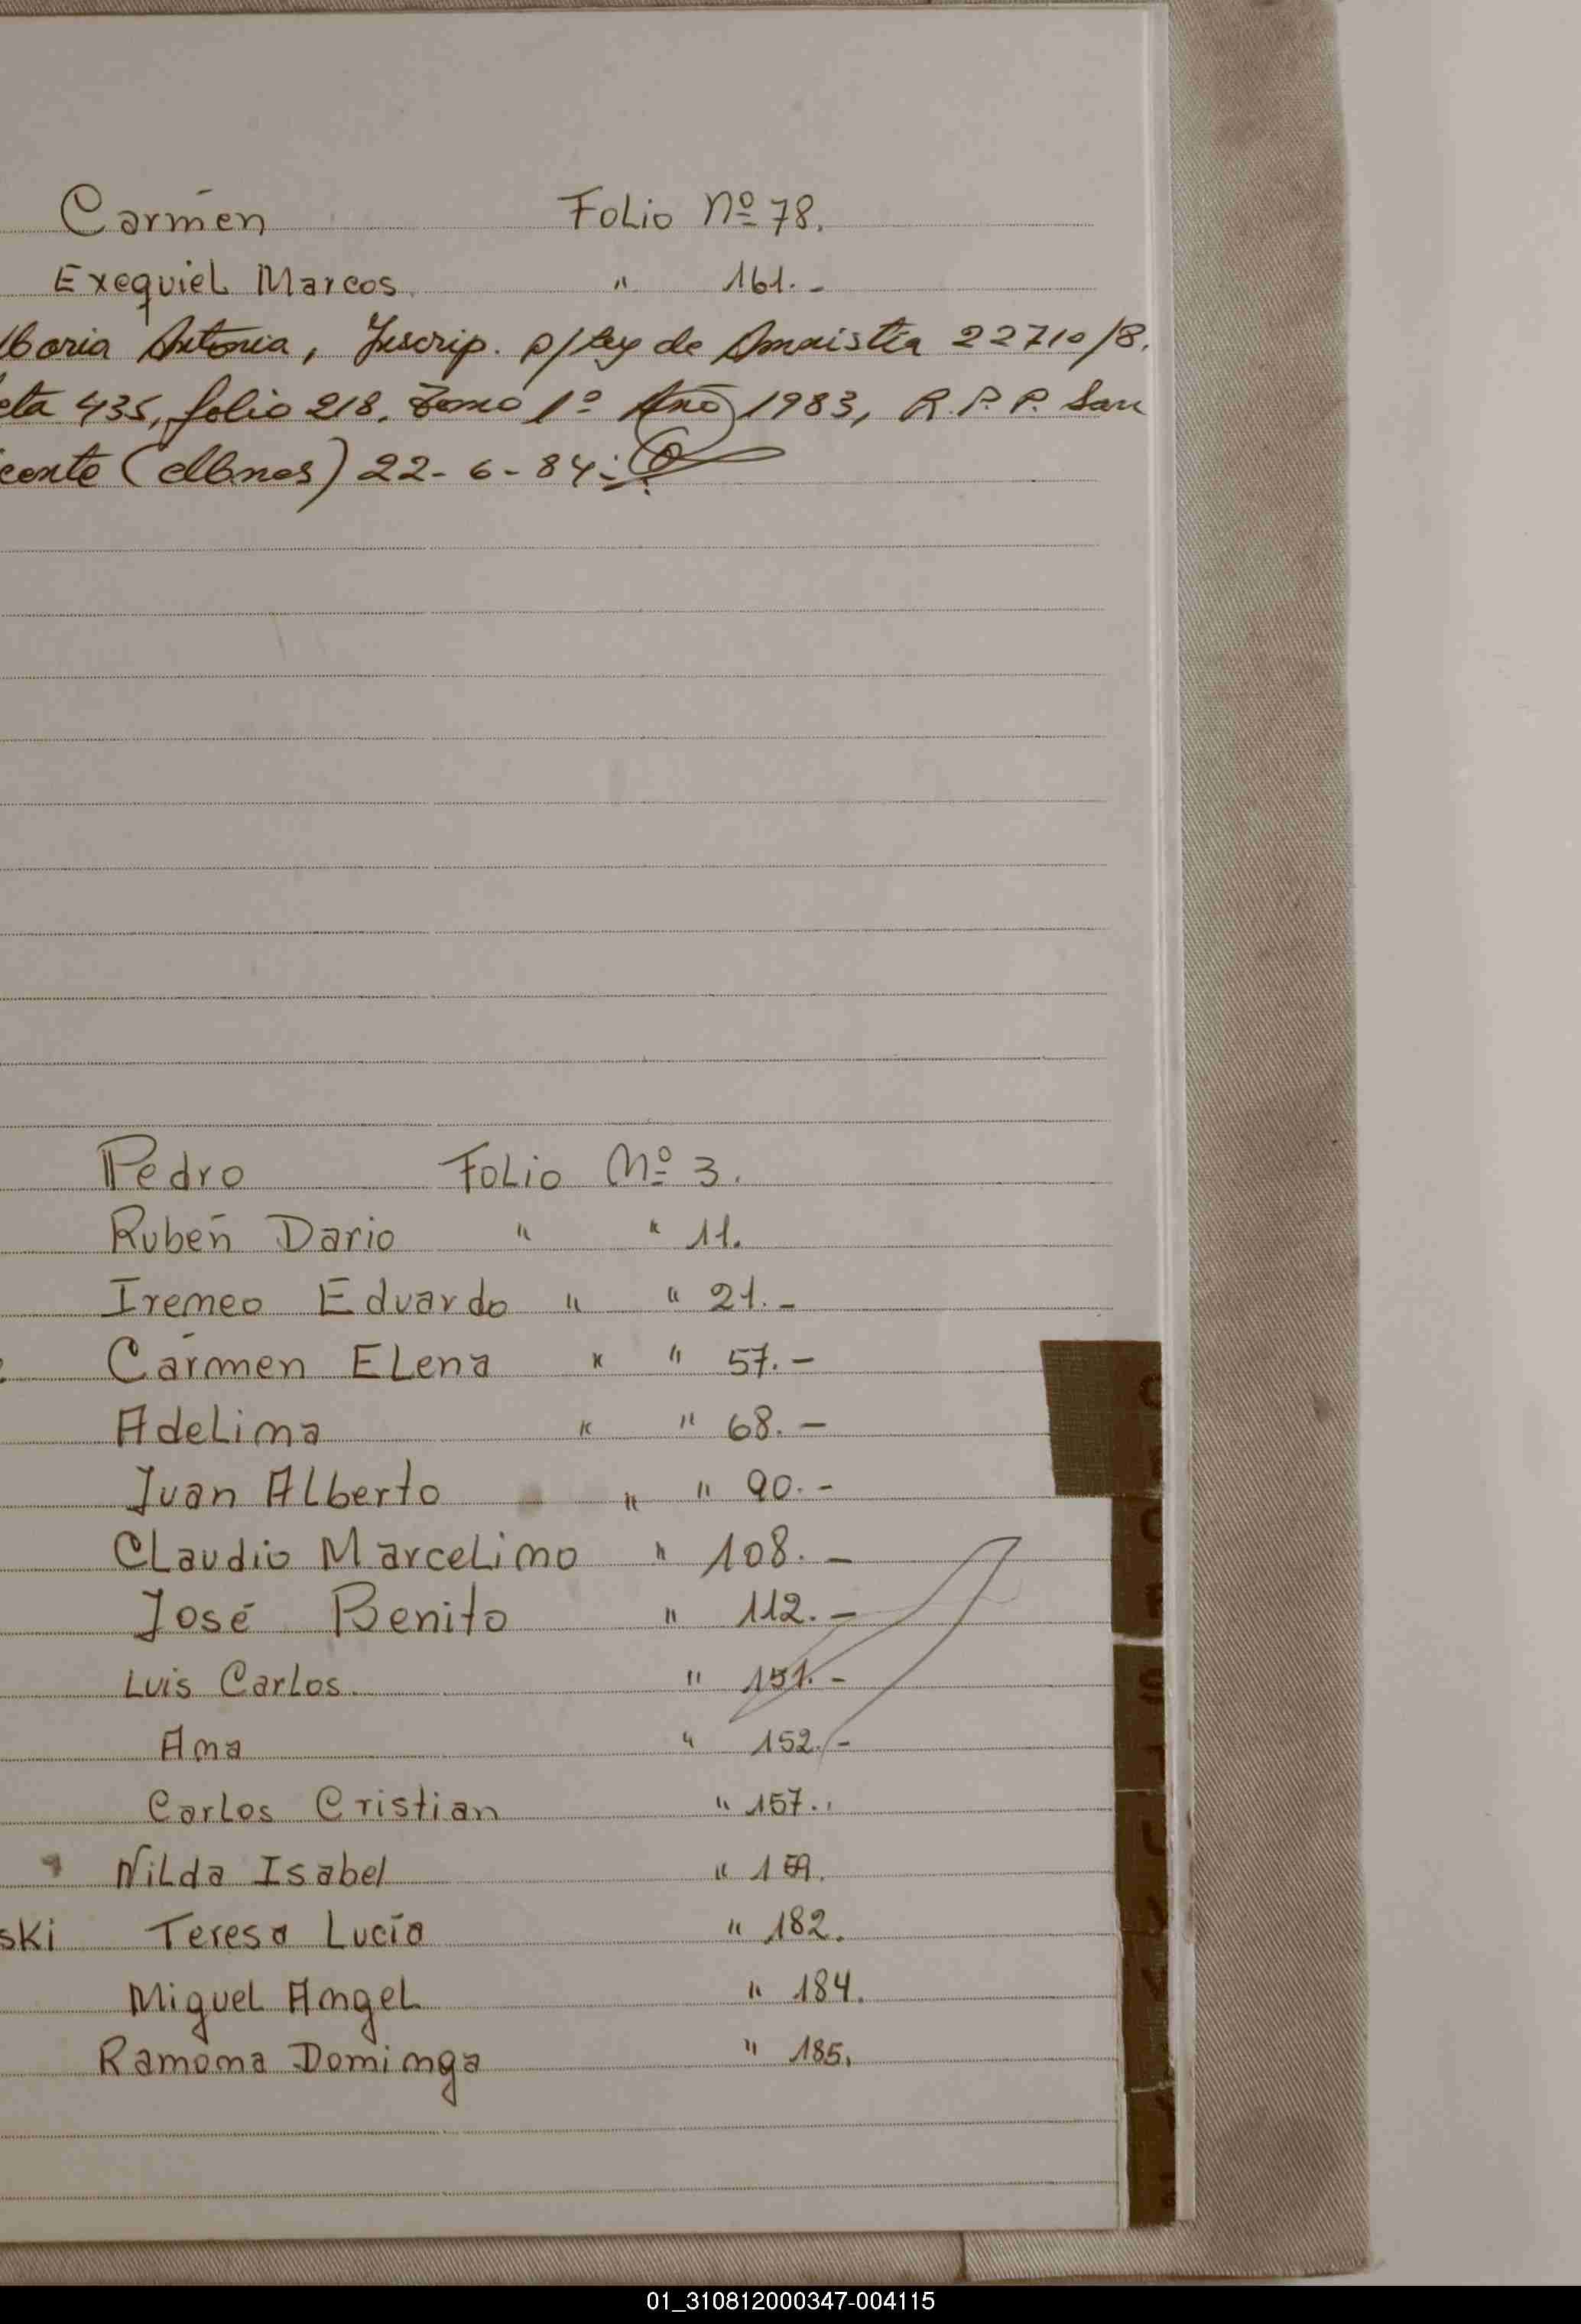 Carmen Folio Nº 78.
Exequiel Marcos. " 161.-
Maria Antonia, Inscrip. p/Ley de Amnistía 22710/8.
cta 435, folio 218, Tomo 1º Año 1983, R.P.P. San
cente (Mnes) 22-6-84.-
Pedro Folio Nº 3.
Rubén Dario " " 11.
Ireneo Eduardo " " 21.-
Carmen Elena " " 57.-
Adelina " " 68.-
Juan Alberto " " 90.-
Claudio Marcelino " 108.-
José Benito " 112.-
Luis Carlos. " 151.-
Ana " 152.-
Carlos Cristian " 157..
Nilda Isabel "
ski Teresa Lucía " 182.
Miguel Angel " 184.
Ramona Dominga " 185.
01_310812000347-004115